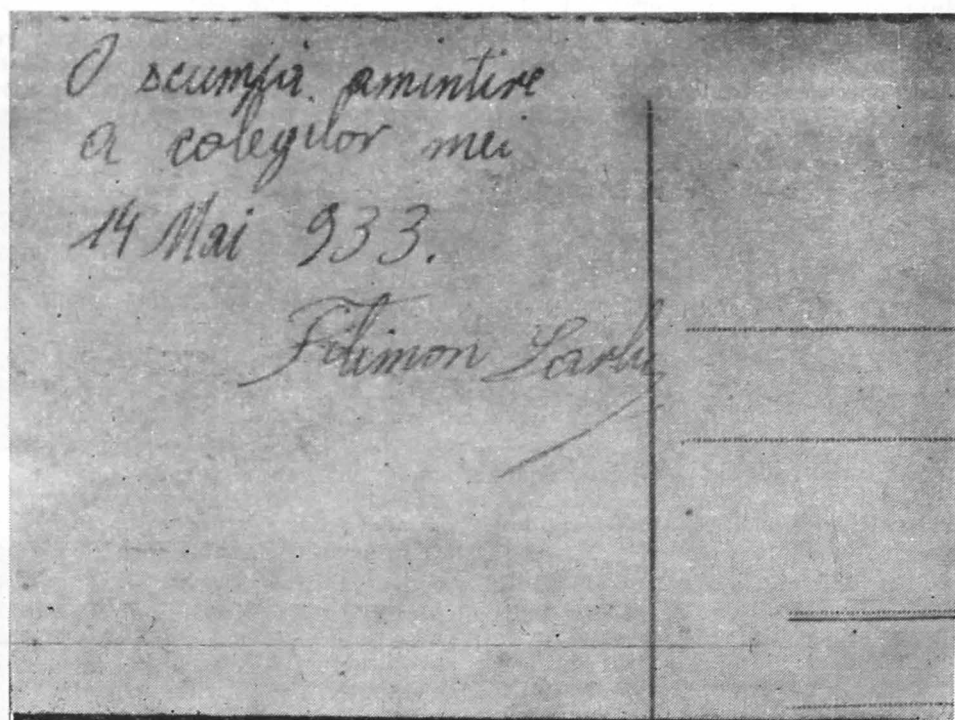 O scumpă amintire
a colegilor mei
14 Mai 933.
Filimon Sarbu